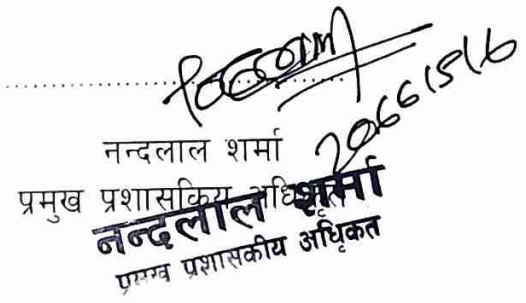 २०६६।५।६
नन्दलाल शर्मा
प्रमुख प्रशासकिय अधिकृत
नन्दलाल शर्मा
प्रमुख प्रशासकीय अधिकृत